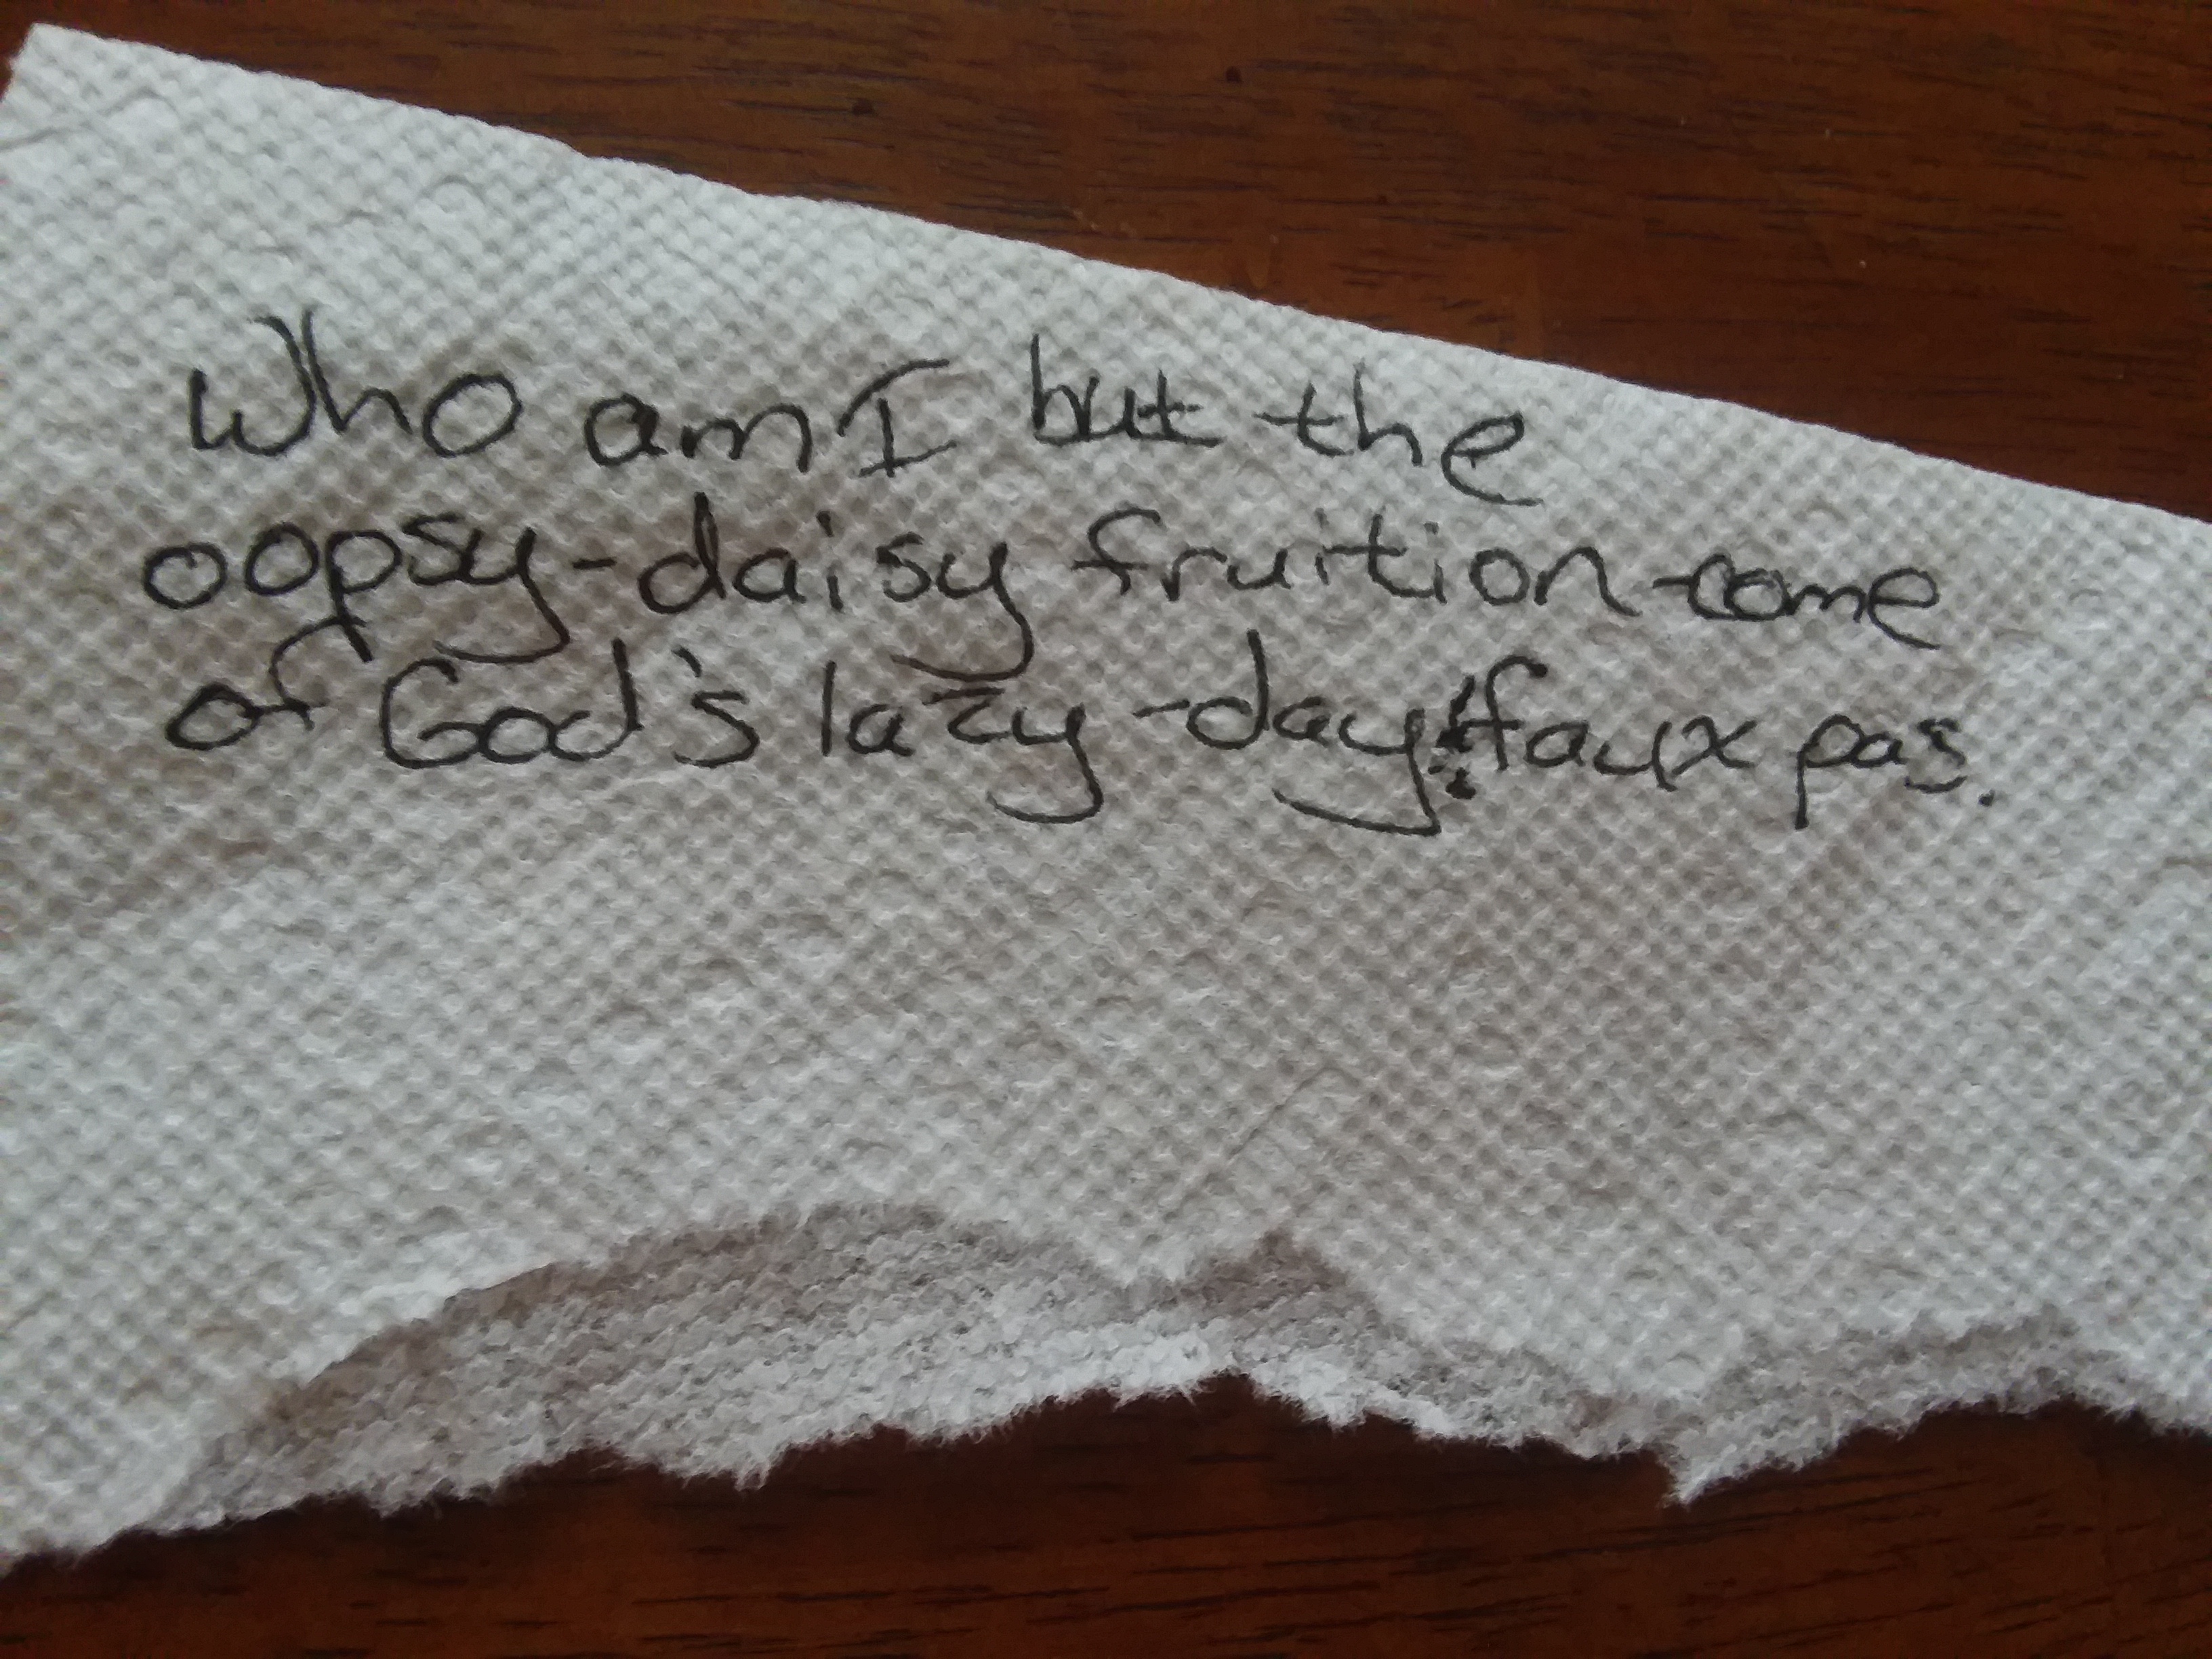 Who am I but the
oopsy-daisy fruition-come
of God's lazy-day faux pas.